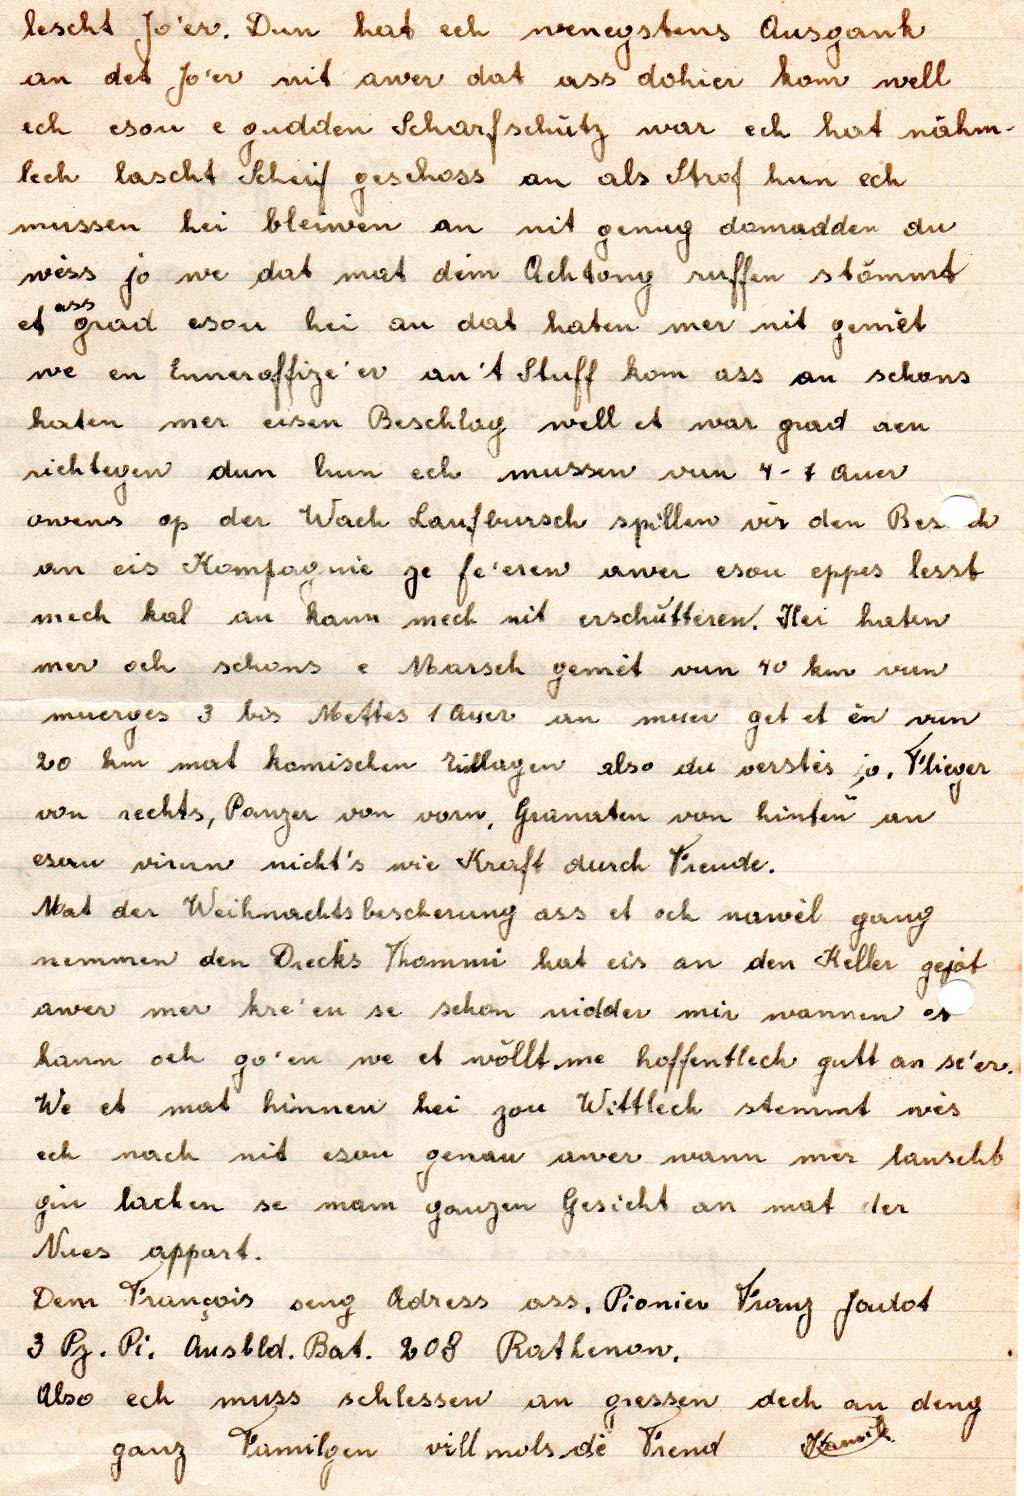 lescht Jo'er. Dun hat ech wenegstens Ausgank
an det Jo'er nit awer dat ass dohier kom well
ech esou e gudden Scharfschütz war ech hat nähm-
lech lascht Scheif geschoss an als Strof hun ech
mussen hei bleiwen an nit genug domadden du
wèss jo we dat mat dem Achtong ruffen stömmt
et ass grad esou hei an dat haten mer nit gemèt
we en Enneroffizé'er an't Stuff kom ass an schons
haten mer eisen Beschlag well et war grad aen
richtegen dun hun ech mussen vun 4-7 Auer
owens op der Wach Laufbursch spillen vir den Bes ch
an eis Kompagnie ze fe'eren awer esou eppes lesst
mech kal an kann mech nit erschütteren. Hei haten
mer och schons e Marsch gemèt vun 40 km vun
muerges 3 bis Mettes 1 Auer an muer get et èn vun
20 km mat komischen Eillagen also du verstès jo. "Flieger
von rechts, Panzer von vorn, Granaten von hinten" an
esou virun nicht's wie Kraft durch Freude.
Mat der Weihnachtsbescherung ass et och nawèl gang
nemmen den Drecks Thommi hat eis an den Keller gejot
awer mer kre'en se schon nidder mir wannen
kann och go'en we et wöllt me hoffentlech gutt an se'er.
We et mat hinnen hei zou Wittlech stemmt wès
ech nach nit esou genau awer wann mer lanscht
gin lachen se mam ganzen Gesicht an mat der
Nues appart.
Dem François seng Adress ass. Pionier Franz Joudot
3 Pz. Pi. Ausbld. Bat. 208 Rathenow.
Also ech muss schlessen an gressen dech an deng
ganz Familgen villmols dè Frend